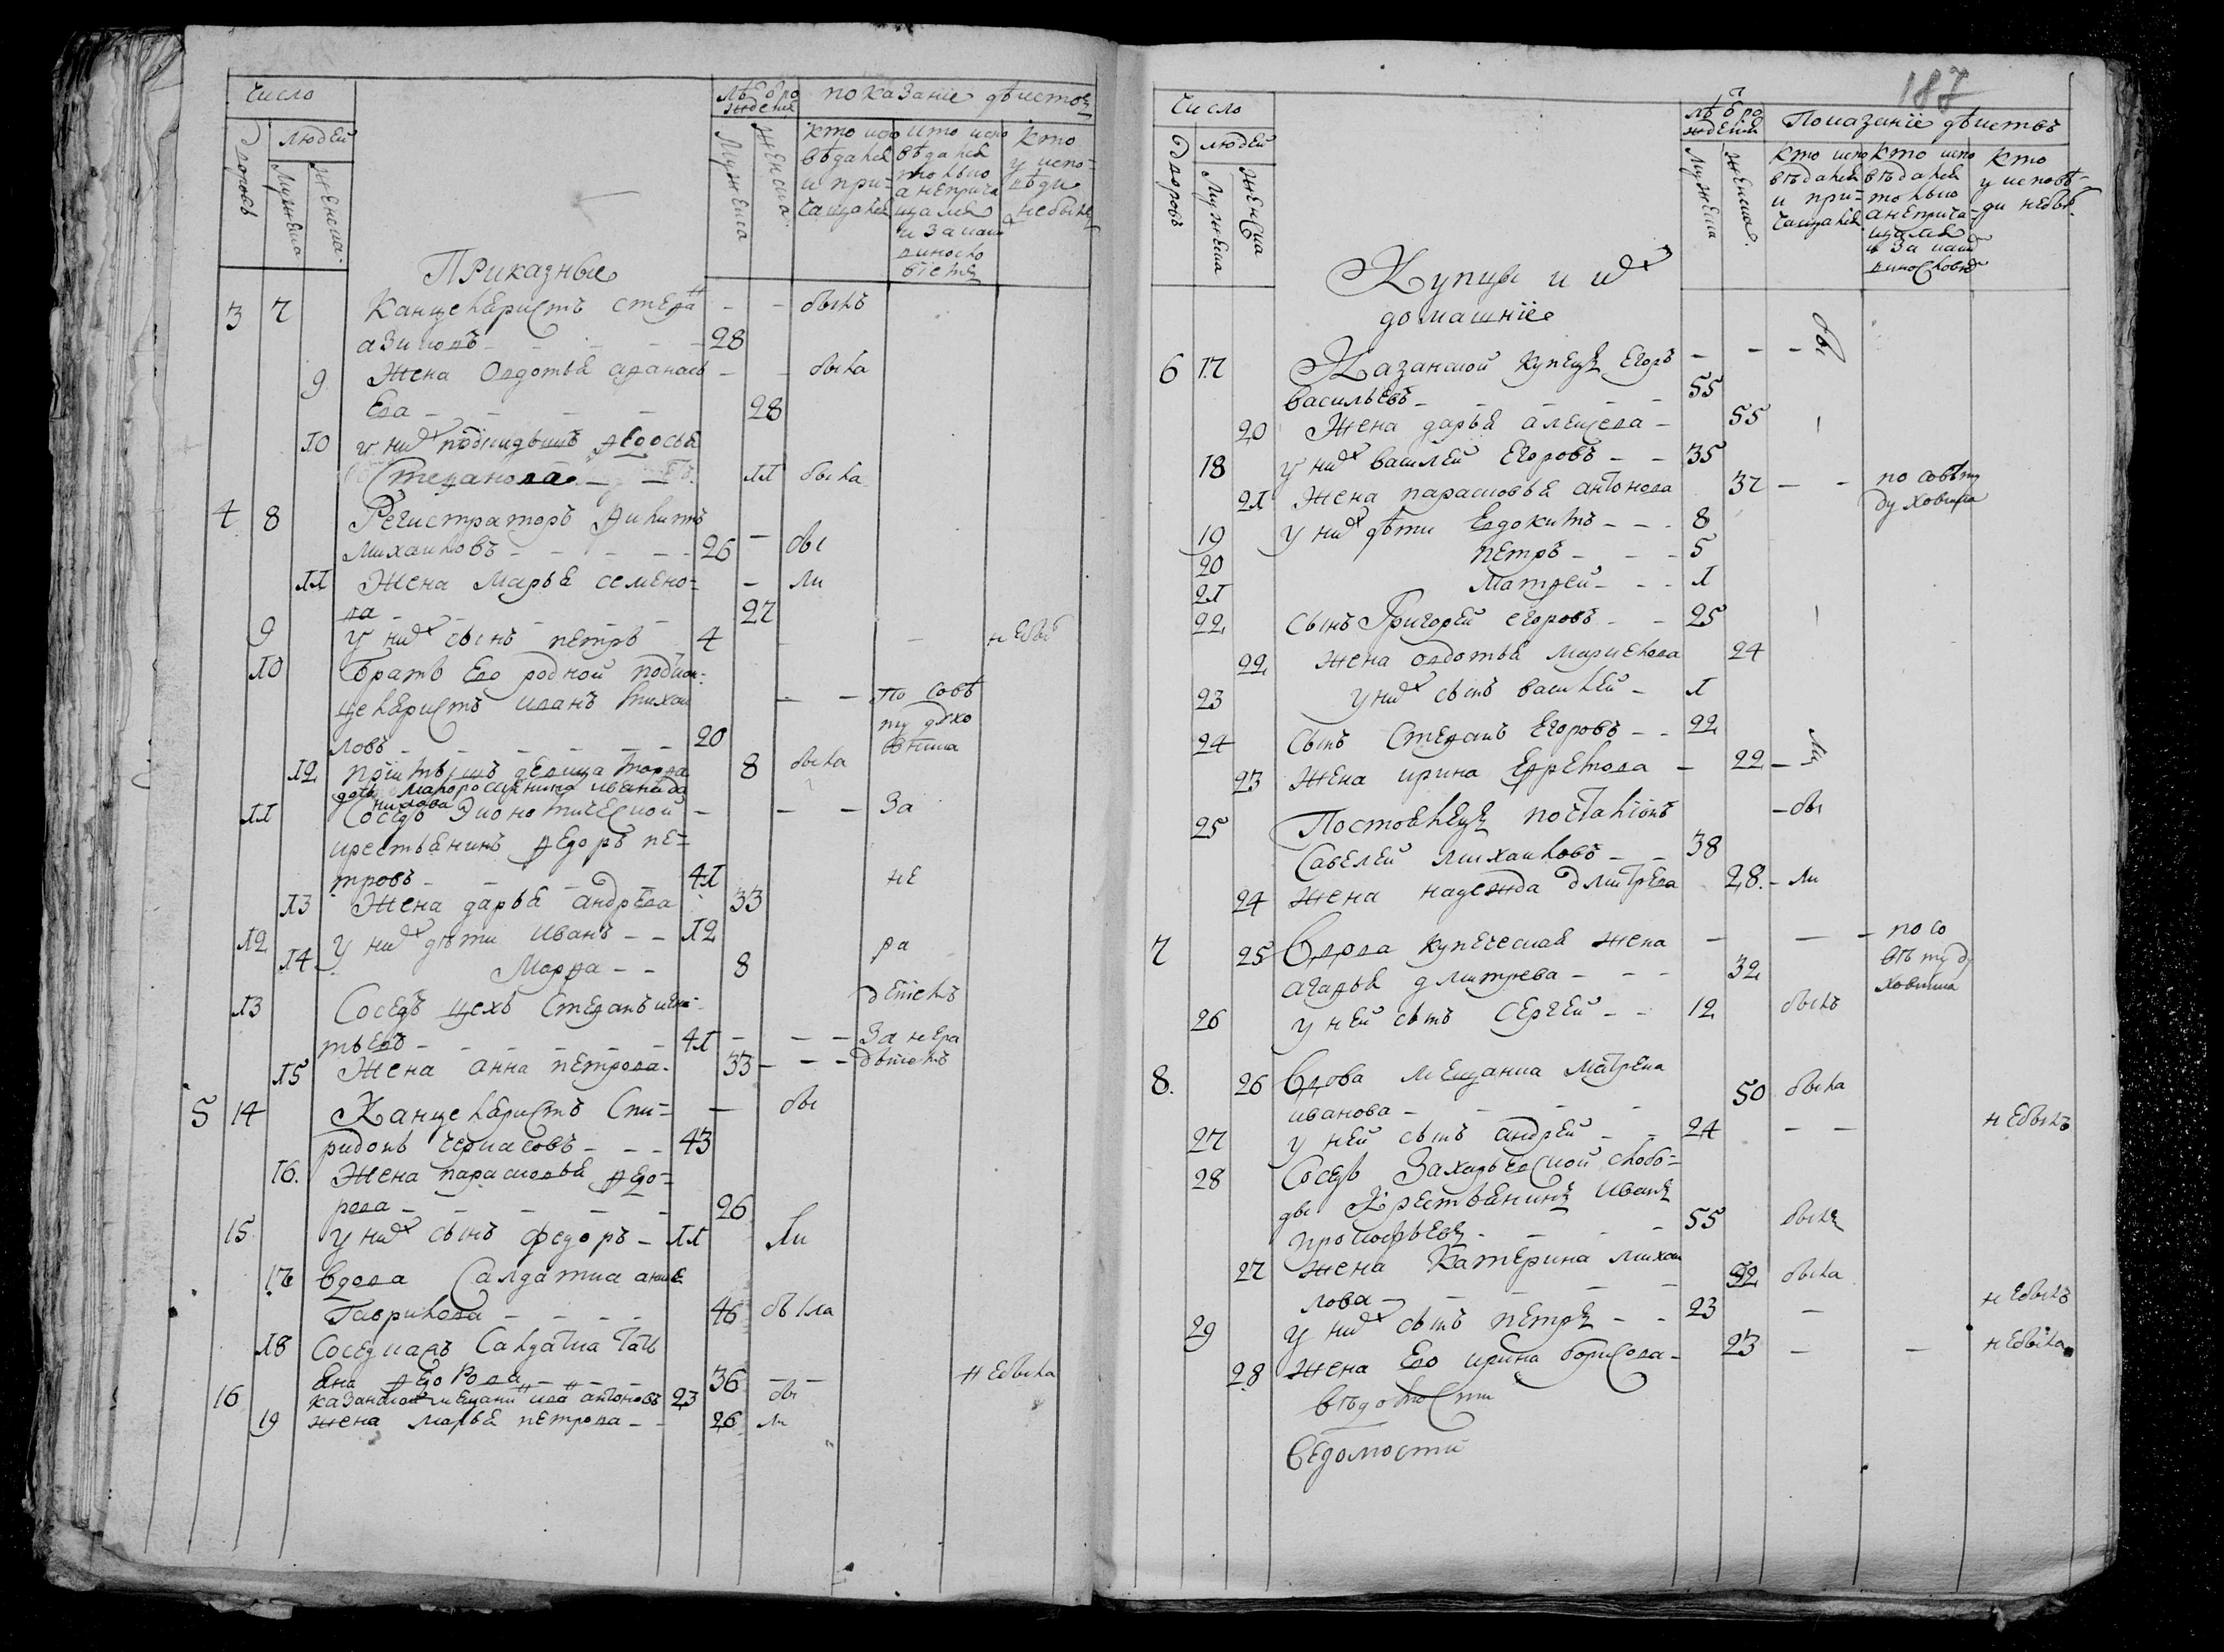 Число
лѣтъ ро
ждения
показание дѣиствъ
дворовъ
людей
Мужеска
женска
Мужеска
Женска
кто испо
вѣдался
и при-
чащался
кто испо
вѣдался
токмо
а неприча
щался
и за каки
виносло
віемъ
кто
у испо-
вѣди
небылъ
Приказные
3 7 Канцеляристъ стефа - - былъ
азиковъ - - - - 28
9 Жена Овдотья афанась - - была
Ева - - - - 28
10 у них Федосья
Степанова - - 11 была
4 8 Регистраторъ Филипъ
михаиловъ - - - - 26 - бы
11 Жена Марья семено- - ли
ва - - - - 27
9 у них сынъ петръ 4 - небы
10 братъ Его родной подкан-
целяристъ иванъ михаи - - по совѣ
ловъ - - - - 20 ту духо
вника
12 девица марфа 8 была
11 Соседъ Экономической - - - за
крестьянинъ Федоръ пе-
тровъ - - - 41 не
13 Жена дарья андрѣева 33
12 У них дѣти Иванъ - - 12 ра
14 Марфа - - 8
13 Соседъ цехъ Стефанъ дениемъ
тьевъ - - - - 41 - - - За нера
15 Жена анна петрова - 33 - - - дѣніемъ
5 14 Канцеляристъ Спи- - бы
ридонъ Черкасовъ - - - 43
16. Жена парасковья Федо-
рова - - - - 26
15 у них сынъ федоръ - 11 ли
17 вдова Салдатка анна
Гаврилова - - - - 46 была
18 Соседка Салдатка Тать
яна Федорова - - - 36 - - небыла
16 казанской мещанинъ антоновъ 23 бы
19 жена марья петрова - - 26 ли
187
Число
лѣтъ ро
ждения
Показаніе дѣиствъ
дворовъ
людей
Мужеска
женска
Мужеска
женска
кто испо
вѣдался
и при-
чащался
кто испо
вѣдался
токмо
анеприча-
щался
и за каки
винословие
кто
у исповѣ-
ди небы
Купцы и их
домашніе
6 17 Казанской купецъ Егоръ - - - бы
васильевъ - - - - - 55
20 Жена дарья алексева - 55
18 у них василей Егоровъ - - 35
21 Жена парасковья антонова 37 - - по совѣту
духовника
19 у них дѣти Евдокимъ - - - 8
20 петръ - - - 5
21 Матфей - - - 1
22 сынъ Григорей егоровъ - - 25
22 жена овдотья маркелова 24
23 у них сынъ василей - 1
24 Сынъ Стефанъ Егоровъ - - 22
23 Жена ирина Ефремова - 22 - ли
25 Постоялецъ - бы
Савелей михаиловъ - - 38
24 жена надежда дмитрева 28. - ли
7 25 Вдова купеческая жена - - - по со
агафья дмитрева - - - 32 вѣту ду
ховника
26 у ней сынъ Сергей - - 12 былъ
8. 26 Вдова мещанка матрена
иванова - - - - 50 была
27 у ней сынъ андрей - - 24 - - небылъ
28 Соседъ Захарьевской слобо-
ды Крестьянинъ Иванъ
прокофьевъ - - - - 55 былъ
27 жена Катерина михаи
лова - - - - 52 была
29 у них сынъ петръ - - 23 - небылъ
28 жена Его ирина борисова - 23 - - небыла
вѣдомости
Ведомости